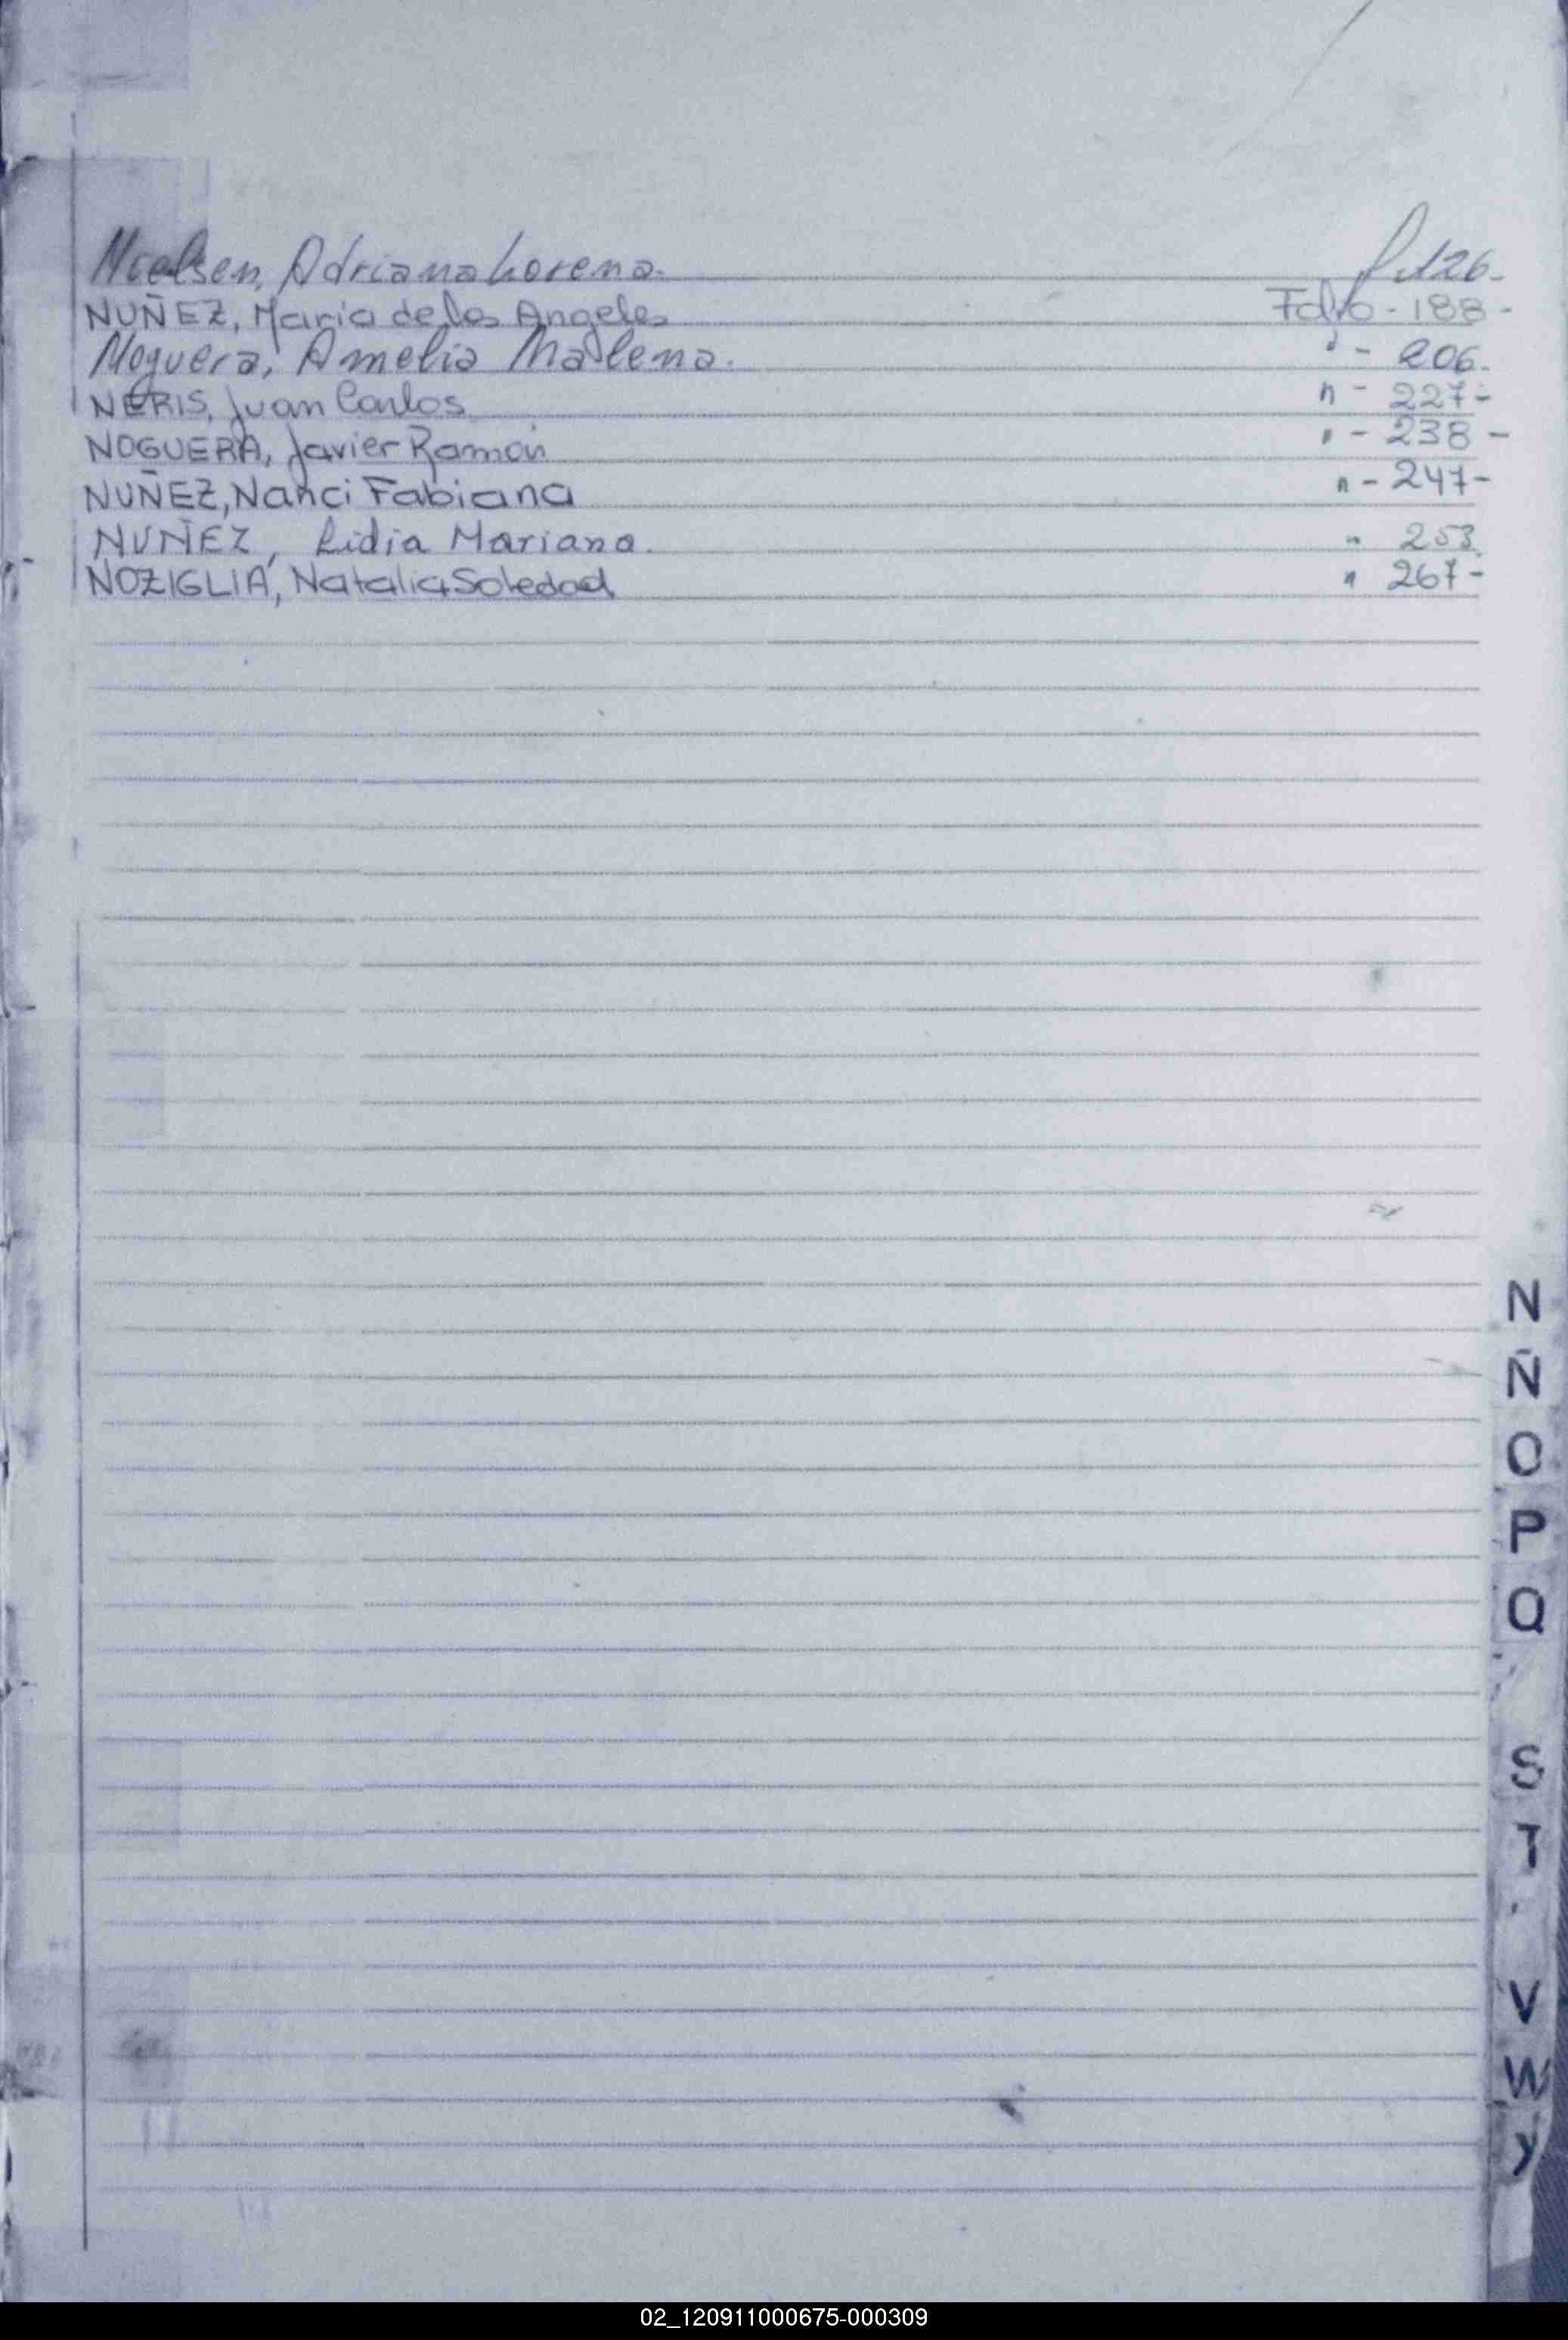 Nielsen, Adriana Lorena. f. 126-
NUÑEZ, Maria de los Angeles Folio - 188 -
Noguera, Amelia Mailena. " - 206.
NERIS, Juan Carlos " - 227-
NOGUERA, Javier Ramón " - 238 -
NUÑEZ, Nanci Fabiana " - 247-
NUÑEZ, Lidia Mariana. " 253.
NOZIGLIA, Natalia Soledad " 267-
N
Ñ
O
P
Q
S
T
V
W
Y
02_120911000675-000309